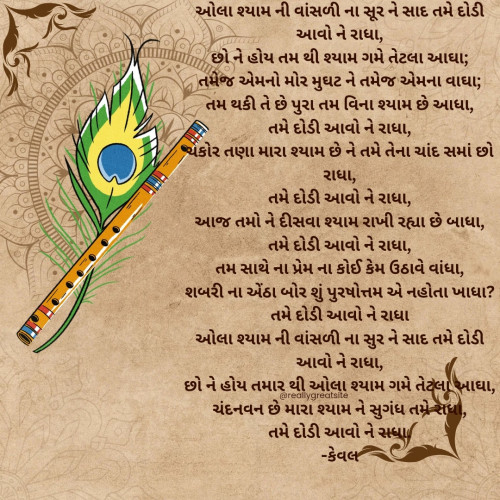 ઓલા શ્યામ ની વાંસળી ના સૂર ને સાદ તમે દોડી
આવો ને રાધા,
છો ને હોય તમ થી શ્યામ ગમે તેટલા આઘા;
તમેજ એમનો મોર મુઘટ ને તમેજ એમના વાઘા;
તમ થકી તે છે પુરા તમ વિના શ્યામ છે આધા,
તમે દોડી આવો ને રાધા,
ચકોર તણા મારા શ્યામ છે ને તમે તેના ચાંદ સમાં છો
રાધા,
તમે દોડી આવો ને રાધા,
આજ તમો ને દીસવા શ્યામ રાખી રહ્યા છે બાધા,
તમે દોડી આવો ને રાધા,
તમ સાથે ના પ્રેમ ના કોઈ કેમ ઉઠાવે વાંધા,
શબરી ના એંઠા બોર શું પુરષોત્તમ એ નહોતા ખાધા?
તમે દોડી આવો ને રાધા
ઓલા શ્યામ ની વાંસળી ના સુર ને સાદ તમે દોડી
આવો ને રાધા,
છો ને હોય તમાર થી ઓલા શ્યામ ગમે તેટલા આઘા,
@reallygreatsite
ચંદનવન છે મારા શ્યામ ને સુગંધ તમે રાધા,
તમે દોડી આવો ને રાધા,
-કેવલ